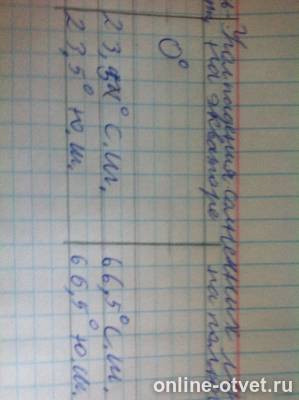 Угол падения солнечных
на экваторе на поляр
0°
23,5° с.ш. 66,5° с.ш.
23,5° ю.ш. 66,5° ю.ш.
online-otvet.ru